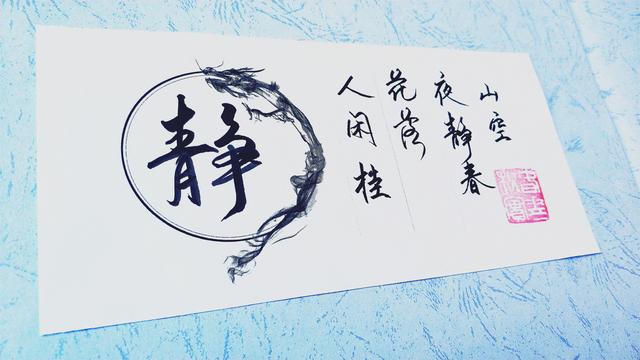 静
人闲桂
花落
夜静春
山空